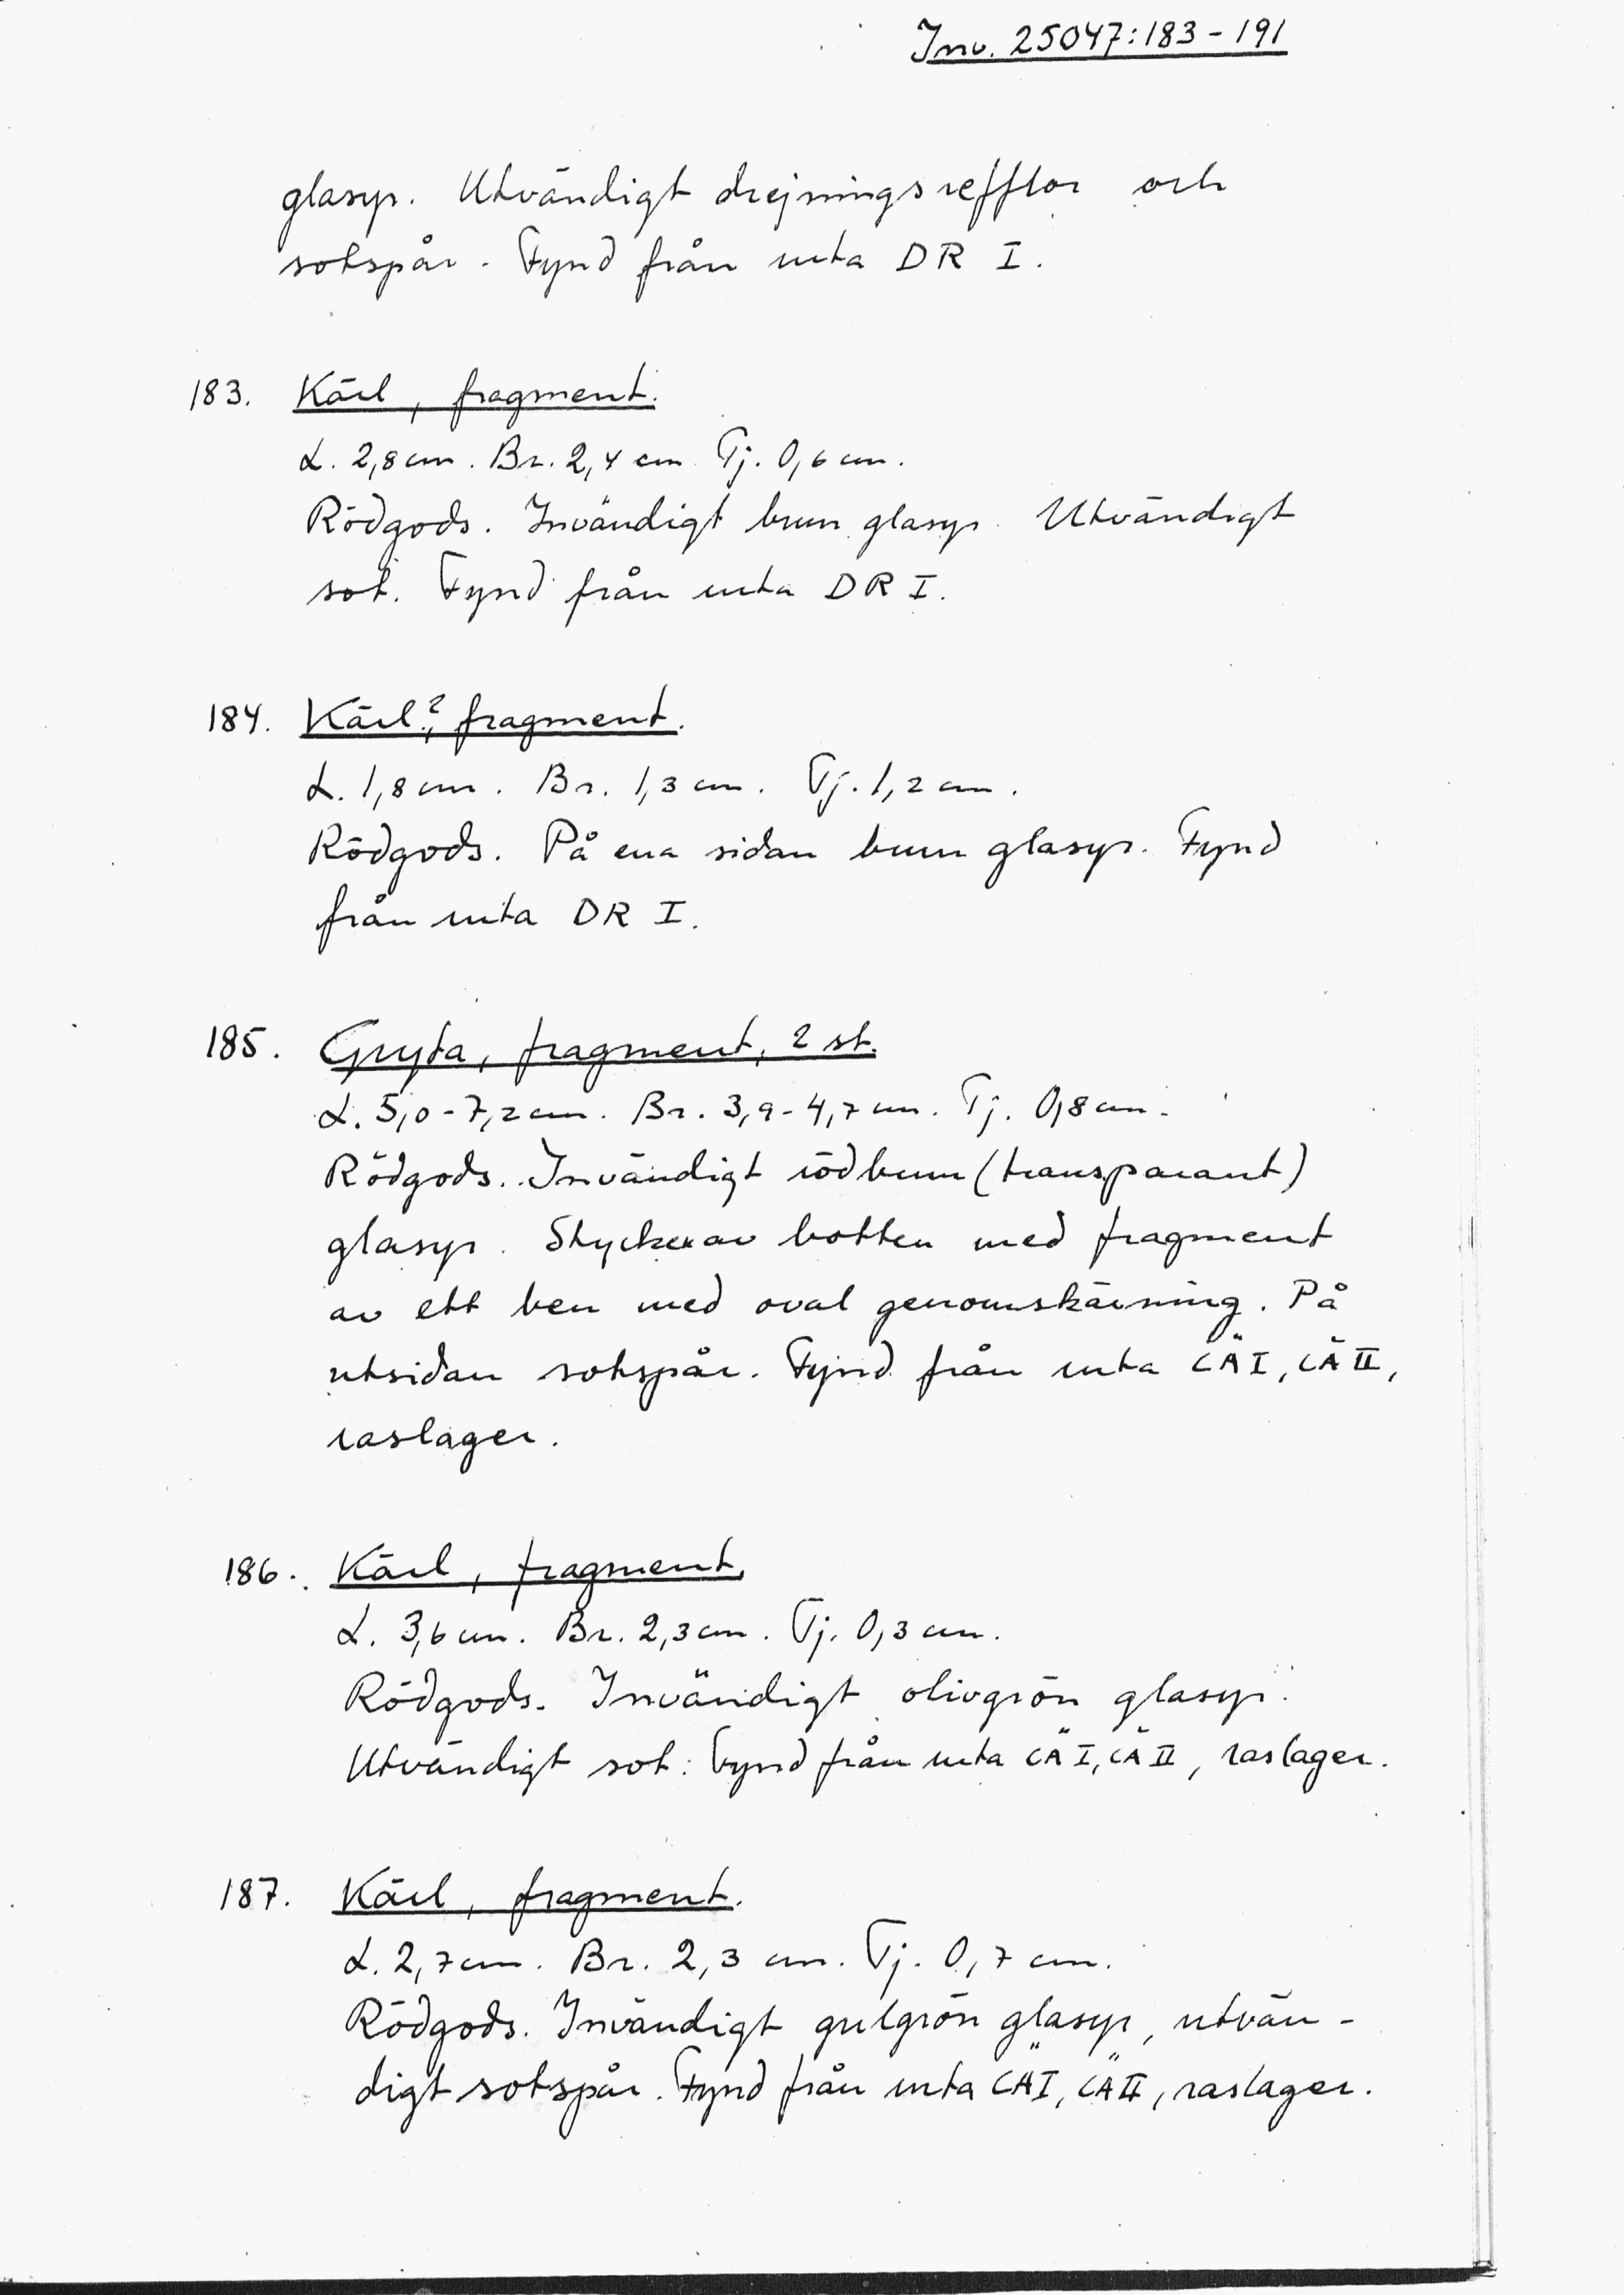 Inv. 25047:183-191
glasyr. Utvändigt drejningsrefflor och
sotspår. Fynd från ruta DR I.
183. Kärl, fragment.
L. 2,8 cm. Br. 2,4 cm Tj. 0,6 cm.
Rödgods. Invändigt brun glasyr. Utvändigt
sot. Fynd från ruta DR I.
184. Kärl?, fragment.
L. 1,8 cm. Br. 1,3 cm. Tj. 1,2 cm.
Rödgods. På ena sidan brun glasyr. Fynd
från ruta DR I.
185. Gryta, fragment, 2 st.
L. 5,0-7,2 cm. Br. 3,9-4,7 cm. Tj. 0,8 cm.
Rödgods. Invändigt rödbrun (transparant)
glasyr. Stycken av botten med fragment
av ett ben med oval genomskärning. På
utsidan sotspår. Fynd från ruta CÄ I, CÄ II,
raslager.
186. Kärl, fragment.
L. 3,6 cm. Br. 2,3 cm. Tj. 0,3 cm.
Rödgods. Invändigt olivgrön glasyr.
Utvändigt sot. Fynd från ruta CÄ I, CÄ II, raslager.
187. Kärl, fragment.
L. 2,7 cm. Br. 2,3 cm. Tj. 0,7 cm.
Rödgods. Invändigt gulgrön glasyr, utvän-
digt sotspår. Fynd från ruta CÄ I, CÄ II, raslager.